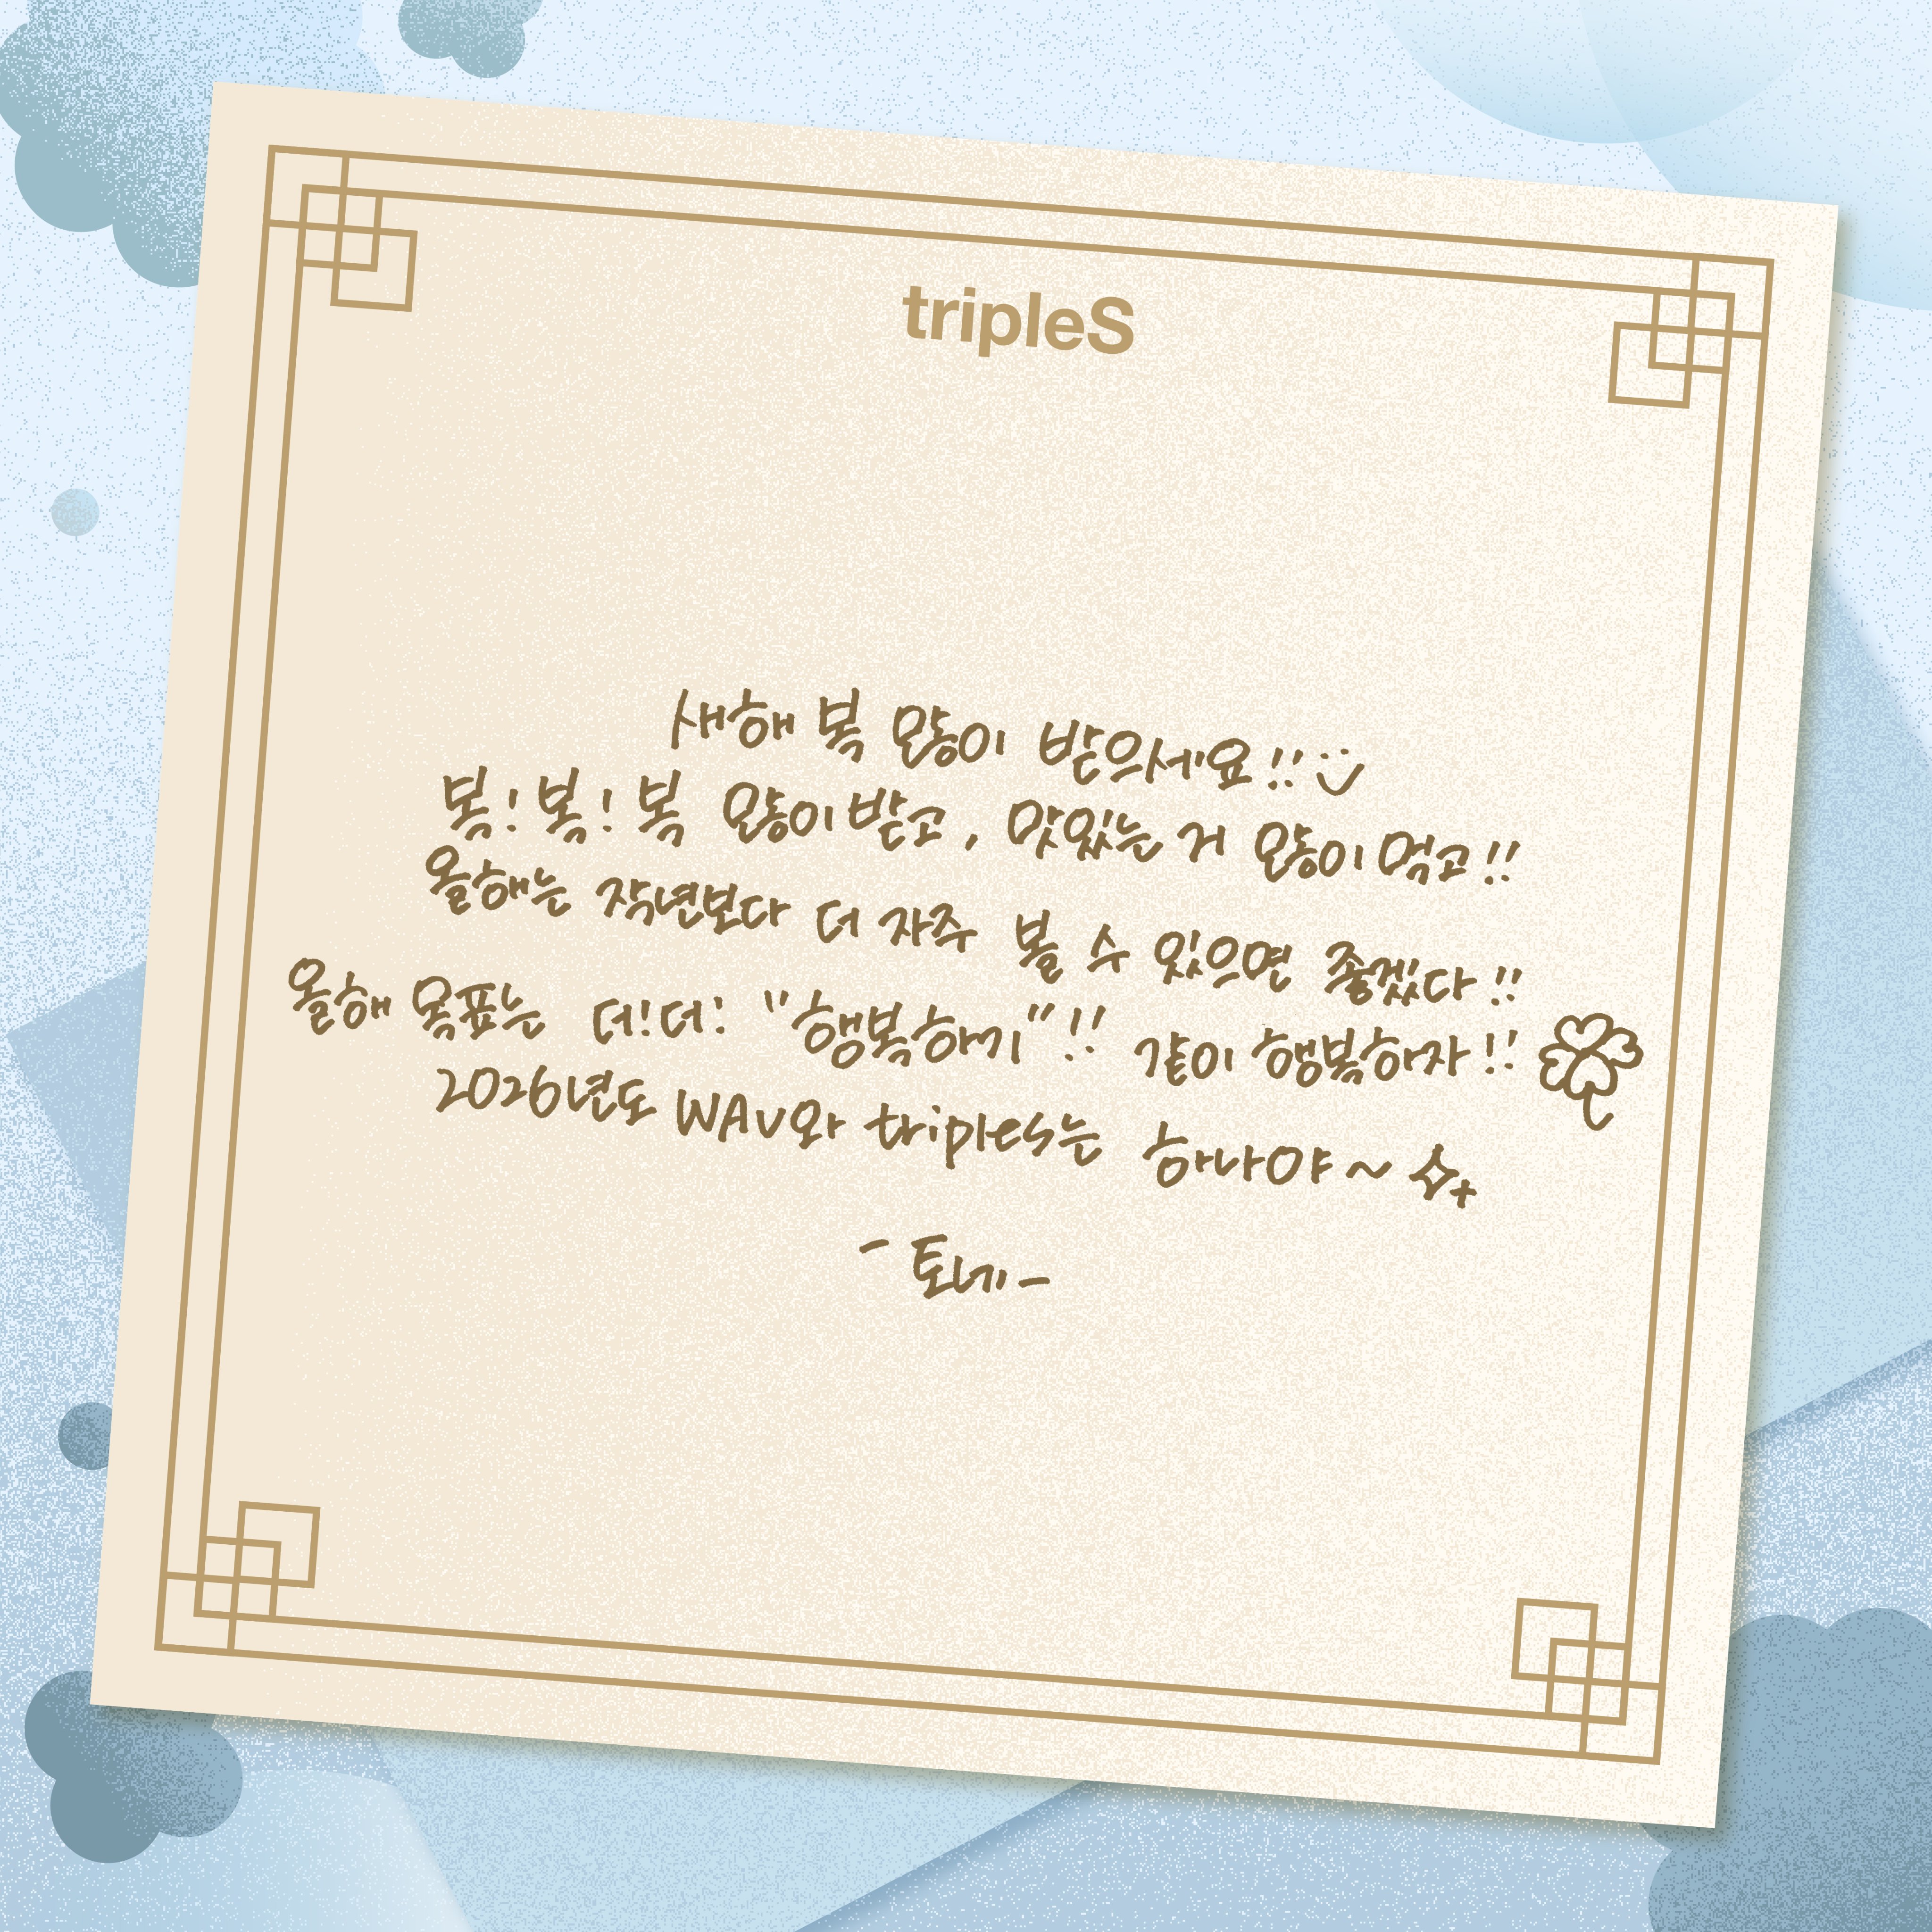 tripleS
새해 복 많이 받으세요!!
복! 복! 복 많이 받고, 맛있는 거 많이 먹고!!
올해는 작년보다 더 자주 볼 수 있으면 좋겠다!!
올해 목표는 더! 더! "행복하기"!! 같이 행복하자!!
2026년도 WAV와 tripleS는 하나야~
- 토네 -